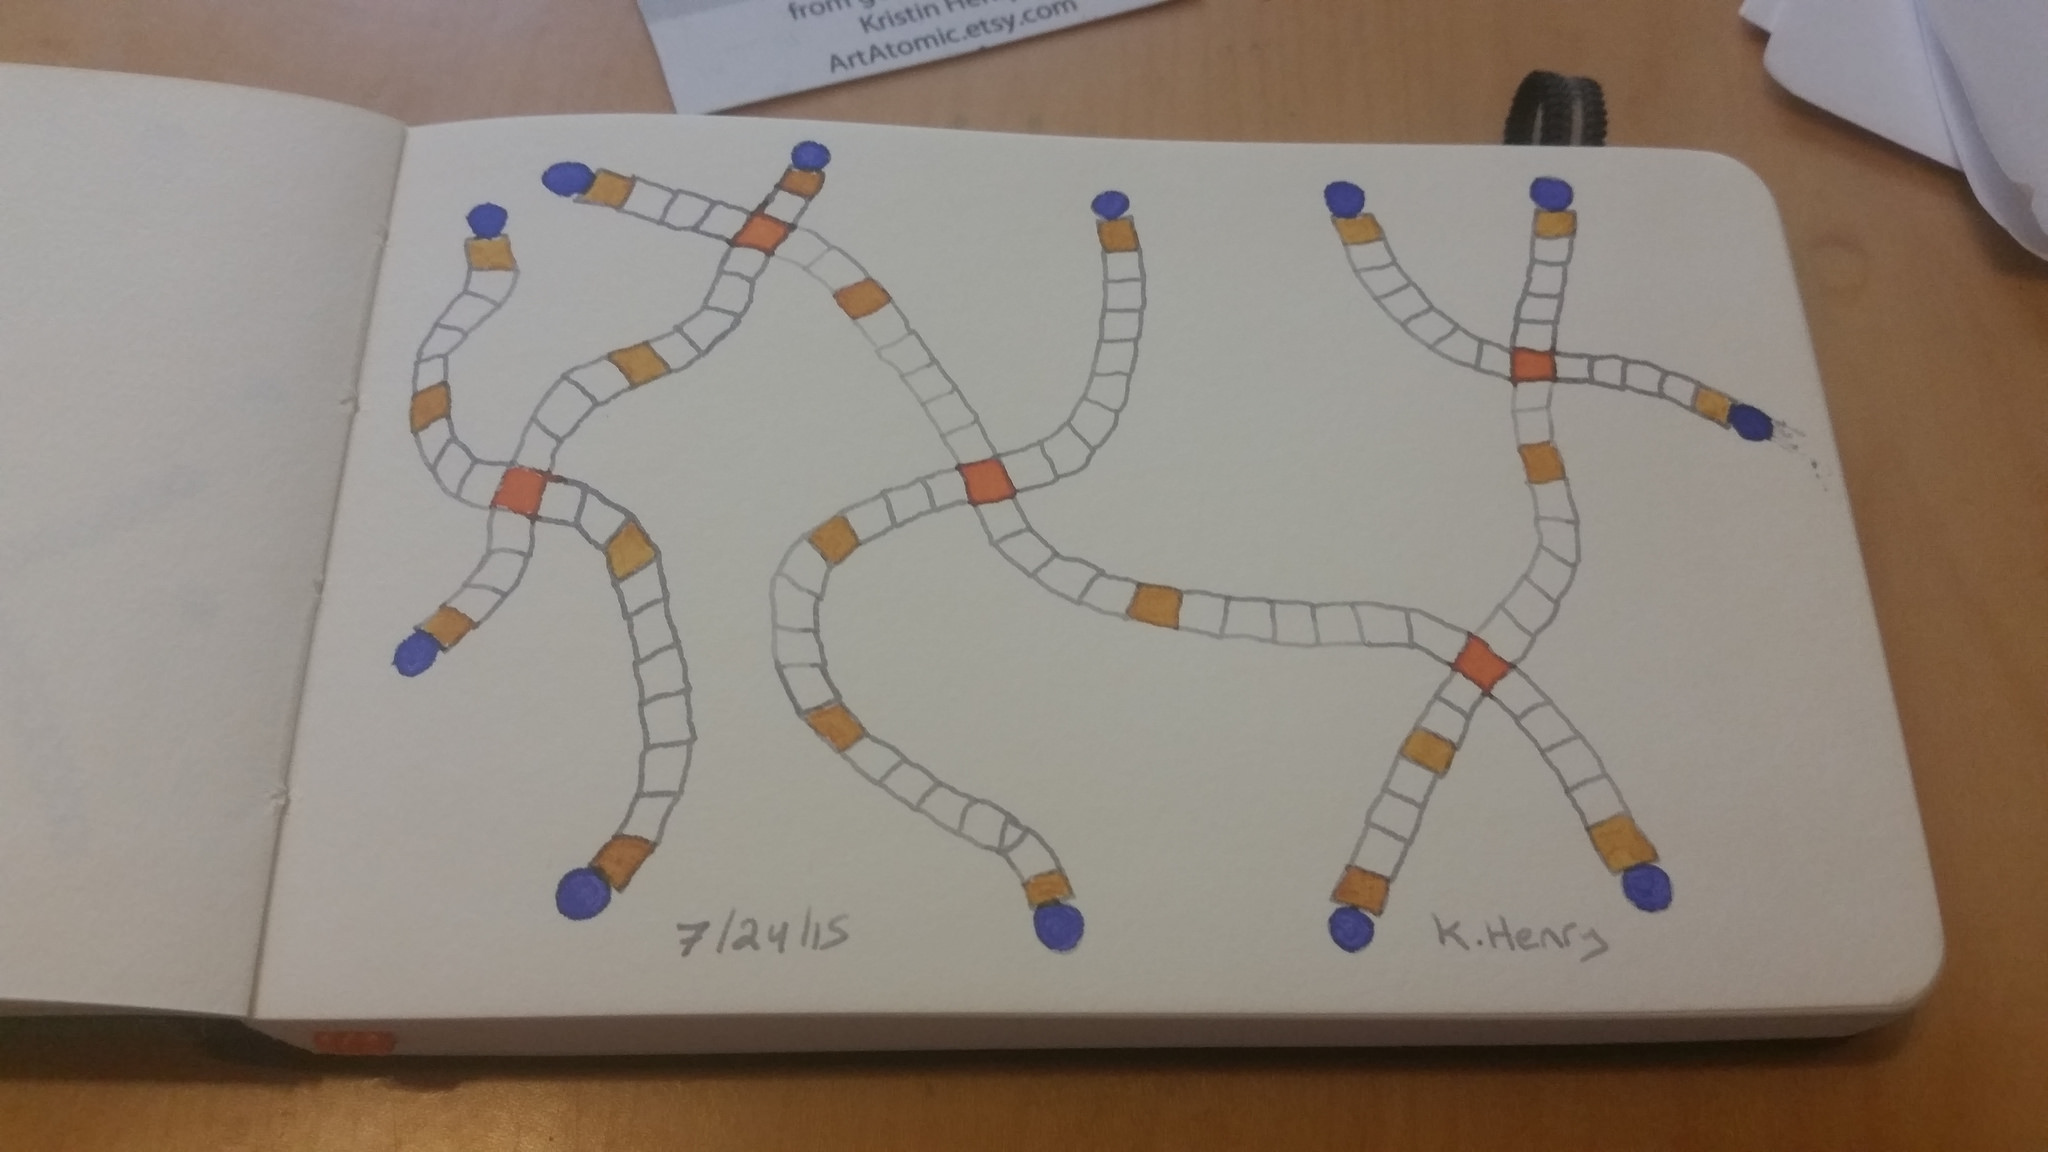 from g
Kristin Hen
ArtAtomic.etsy.com
7/24/15
K.Henry